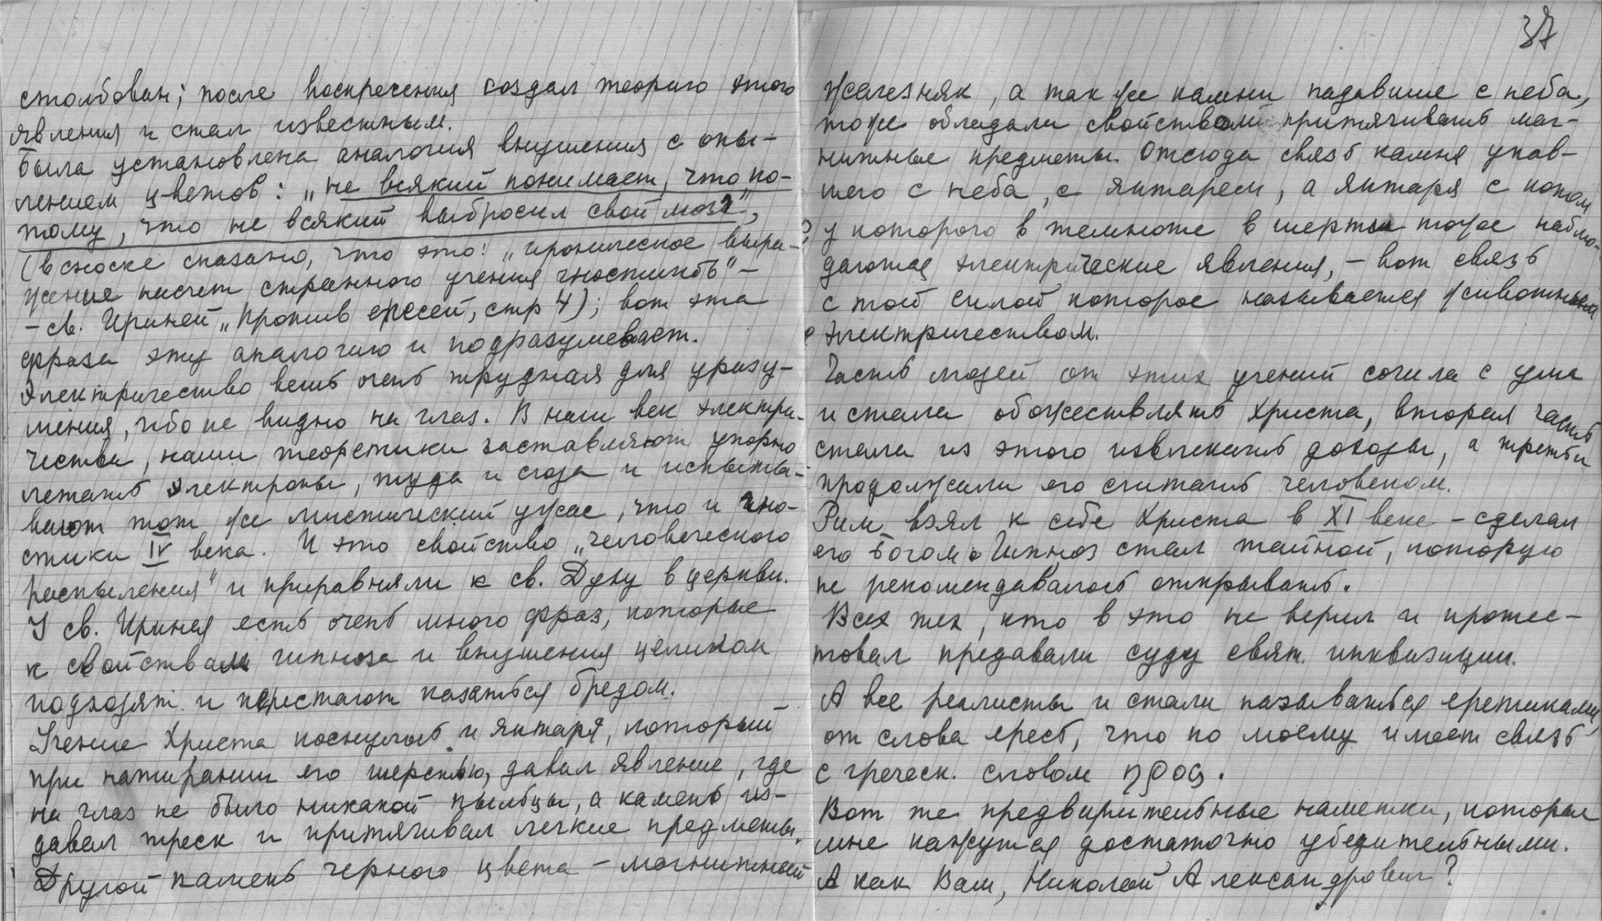 столбован; после воскресения создал теорию этого
явления и стал известным.
Была установлена аналогия внушения с опы-
лением цветов: „не всякий понимает, что по-
тому, что не всякий выбросил свой мозг",
(в сноске сказано, что это: „ироническое выра-
жение насчет странного учения гностиков" –
– св. Ириней „Против ересей, стр 4); вот эта
фраза эту аналогию и подразумевает.
Электричество вещь очень трудная для уразу-
мения, ибо не видно на глаз. В наш век электри-
чества, наши теоретики заставляют упорно
летать электроны, туда и сюда и испыты-
вают тот же мистический ужас, что и гно-
стики IV века. И это свойство „человеческого
распыления" и приравняли к св. Духу в церкви.
У св. Иринея есть очень много фраз, которые
к свойствам гипноза и внушения целиком
подходят и перестают казаться бредом.
Учение Христа коснулось и янтаря, который
при натирании его шерстью, давал явление, где
на глаз не было никакой пыльцы, а камень из-
давал треск и притягивал легкие предметы.
Другой камень черного цвета – магнитный
37
железняк, а так же камни падавшие с неба,
тоже обладали свойствами притягивать маг-
нитные предметы. Отсюда связь камня упав-
шего с неба, с янтарем, а янтаря с котом
у которого в темноте в шерсти тоже наблю-
даются электрические явления, – вот связь
с той силой которое называется животным
электричеством.
Часть людей от этих учений сошла с ума
и стала обожествлять Христа, вторая часть
стала из этого извлекать доходы, а третьи
продолжали его считать человеком.
Рим взял к себе Христа в XI веке – сделал
его Богом. Гипноз стал тайной, которую
не рекомендовалось открывать.
Всех тех, кто в это не верил и протес-
товал предавали суду свят. инквизиции.
А все реалисты и стали называться еретиками,
от слова ересь, что по моему имеет связь
с греческ. словом ηρος.
Вот те предварительные наметки, которые
мне кажутся достаточно убедительными.
А как Вам, Николай Александрович?